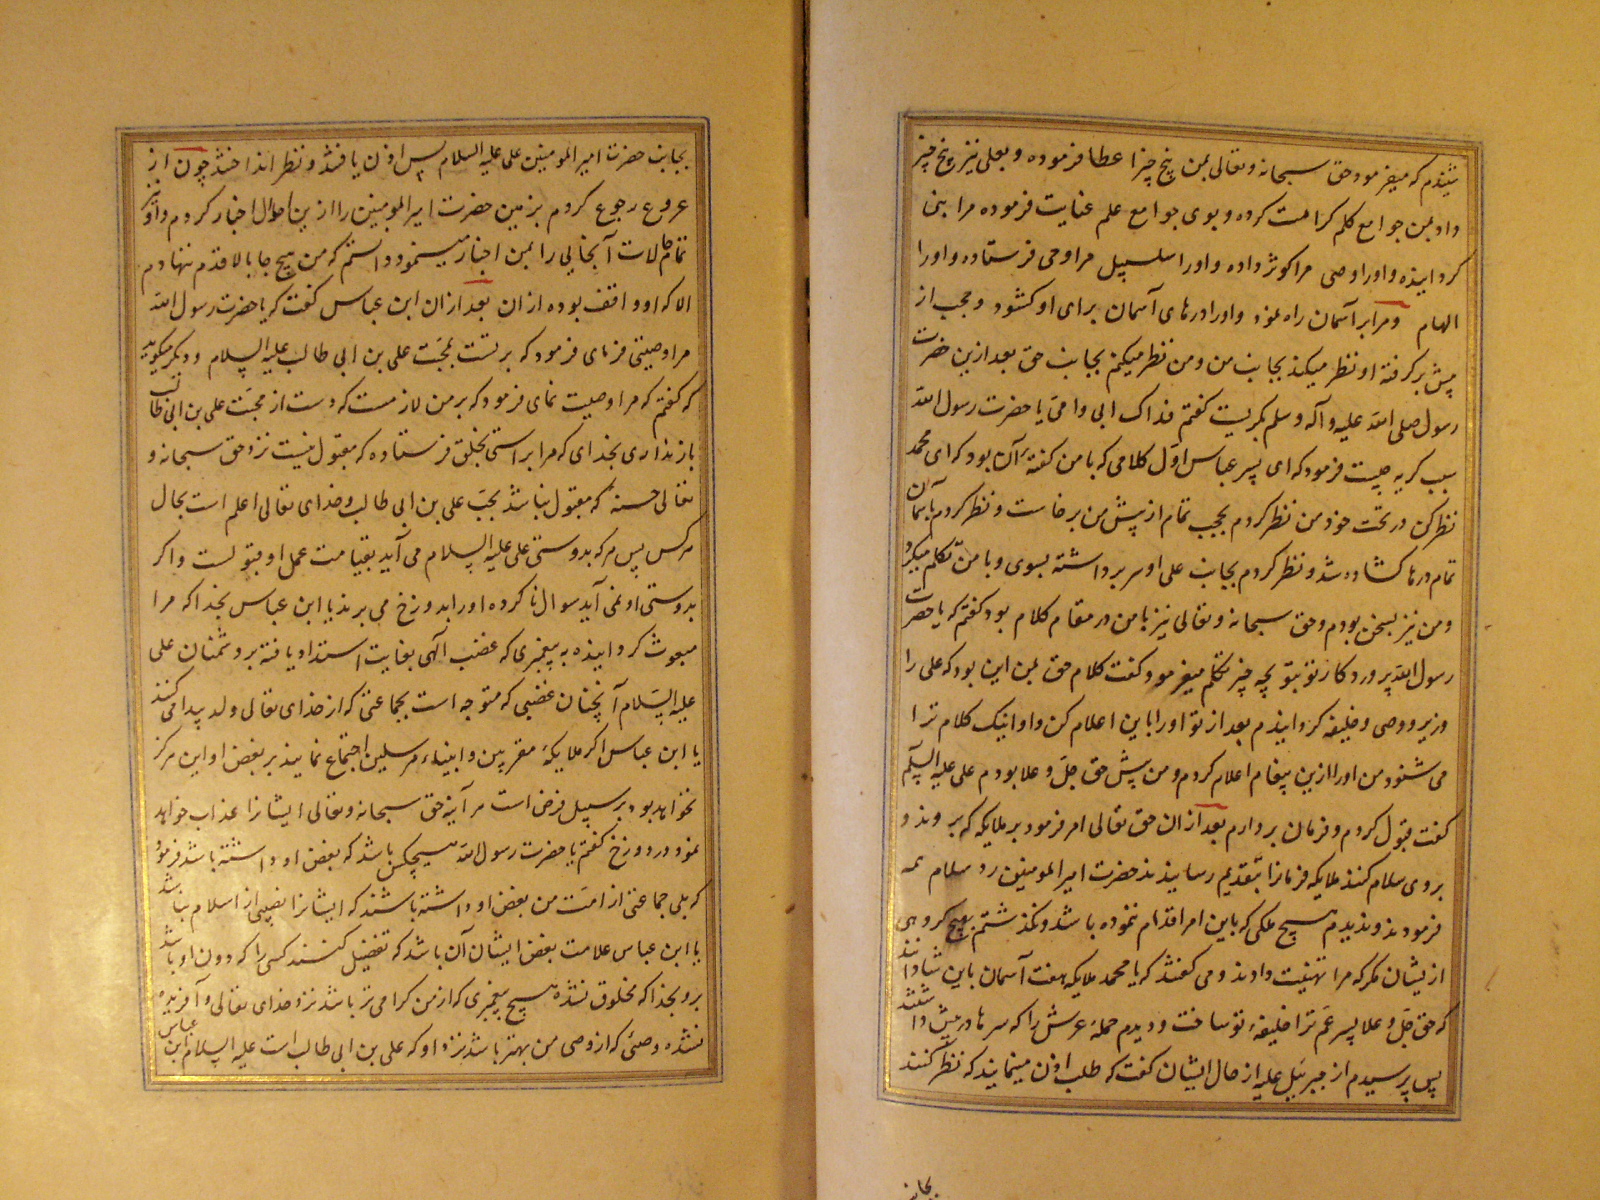 شنیدم که میفرمود حق سبحانه و تعالی بمن پنج چیز اعطا فرموده و بعلی نیز پنج چیز
داد بمن جوامع کلم کرامت کرده و بوی جوامع علم عنایت فرموده مرا نبی
کردانیده و او را وصی مرا کوثر داده و او را سلسبیل مرا وحی فرستاده و او را
الهام و مرا بر آسمان راه نمود و او را درهای آسمان برای او کشود و حجب از
پیش بر گرفته او نظر میکند بجانب من و من نظر میکنم بجانب حق بعد ازین حضرت
رسول صلی الله علیه و آله و سلم بکریست کفتم فداک ابی و امی یا حضرت رسول الله
سبب کریه چیست فرمود که ای پسر عباس اول کلامی که با من کفته آن بود که ای محمد
نظر کن در تحت خود من نظر کردم بحجب تمام از پیش من برخاست و نظر کردم بآسمان
تمام درها کشاده شد و نظر کردم بجانب علی او سر برداشته بسوی و با من تکلم میکرد
و من نیز بسخن بودم و حق سبحانه و تعالی نیز با من در مقام کلام بود کفتم که یا حضرت
رسول الله پروردکار تو بتو بچه چیز تکلم میفرمود کفت کلام حق بمن این بود که علی را
وزیر و وصی و خلیفه کردانیدم بعد از تو او را باین اعلام کن و او اینک کلام ترا
می شنود من او را ازین پیغام اعلام کردم و من پیش حق جل و علا بودم علی علیه السلام
کفت قبول کردم و فرمان بردارم بعد ازان حق تعالی امر فرمود بر ملایکه که بروند و
بروی سلام کنند ملایکه فرمانرا بتقدیم رسانیدند حضرت امیر المومنین رد سلام همه
فرمودند و ندیدم هیچ ملکی که باین امر اقدام ننموده باشد و نکذشتم بهیچ کروهی
ازیشان مکر که مرا تهنیت دادند و می کفتند که یا محمد ملایکه هفت آسمان باین شادانند
که حق جل و علا پسر عم ترا خلیفه تو ساخت و دیدم حمله عرش را که سرها در پیش داشتند
پس پرسیدم از جبرئیل علیه از حال ایشان کفت که طلب اذن مینمایند که نظر کنند
بجانب
بجانب حضرت امیر المومنین علی علیه السلام پس اذن یافتند و نظر انداختند چون از
عروج رجوع کردم بزمین حضرت امیر المومنین را ازین احوال اخبار کردم و او نیز
تمام حالات آنجایی را بمن اخبار مینمود دانستم که من هیچ جا بالا قدم ننهادم
الا که او واقف بوده ازان بعد ازان ابن عباس کفت که یا حضرت رسول الله
مرا وصیتی فرمای فرمود که بر تست بمحبت علی بن ابی طالب علیه السلام و دیکر میکوید
که کفتم که مرا وصیت نمای فرمود که بر من لازمست که دست از محبت علی بن ابی طالب
باز نداری بخدای که مرا براستی بخلق فرستاده که مقبول نیست نزد حق سبحانه و
تعالی حسنه که مقبول نباشد بحب علی بن ابی طالب و خدای تعالی اعلم است بحال
هر کس پس هر که بدوستی علی علیه السلام می آید بقیامت عمل او قبولست و اکر
بدوستی او نمی آید سوال نا کرده او را بدوزخ می برند یا ابن عباس بخدا که مرا
مبعوث کردانیده به پیغمبری که غضب الهی بغایت اشتداد یافته بر دشمنان علی
علیه السلام آنچنان غضبی که متوجه است بجماعتی که از خدای تعالی ولد پیدا می کنند
یا ابن عباس اکر ملایکه مقربین و انبیاء مرسلین اجتماع نمایند بر بغض او و این هرکز
نخواهد بود بر سبیل فرض است هر آینه حق سبحانه و تعالی ایشانرا عذاب خواهد
نمود در دوزخ کفتم یا حضرت رسول الله هیچکس باشد که بغض او داشته باشد فرمود
که بلی جماعتی از امت من بغض او داشته باشند که ایشانرا نصیبی از اسلام نباشد
یا ابن عباس علامت بغض ایشان آن باشد که تفضیل کنند کسی را که دون او باشد
برو بخدا که مخلوق نشده هیچ پیغمبری که از من کرامی تر باشد نزد خدای تعالی و آفریده
نشده وصئی که از وصی من بهتر باشد نزد او که علی بن ابی طالب است علیه السلام ابن عباس